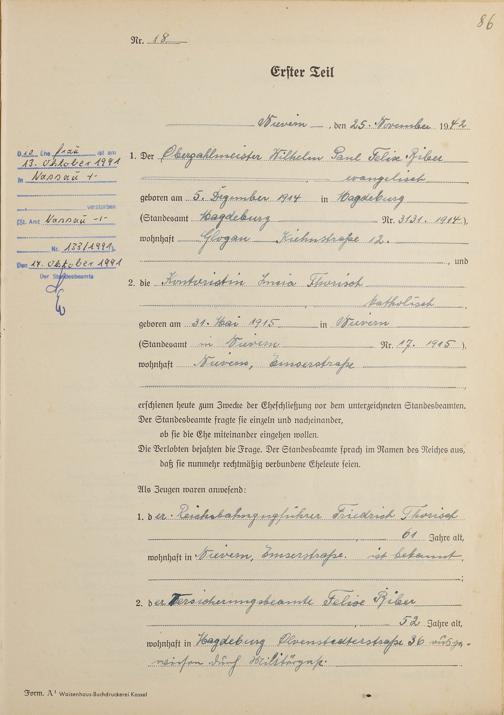 86
Nr. 18
Erster Teil
Nievern, den 25. November 1942
Die Ehe Frau ist am
13. Oktober 1991
in Nassau
verstorben
(St. Amt Nassau
Nr. 133/1991).
Den 14. Oktober 1991
Der Standesbeamte
1. Der Oberzahlmeister Wilhelm Paul Felix Riber
evangelisch
geboren am 5. Dezember 1914 in Magdeburg
(Standesamt Magdeburg Nr. 3131. 1914),
wohnhaft Glogau Kuhnstraße 12.
, und
2. die Kontoristin Lucia Thorisch
katholisch
geboren am 31. Mai 1915 in Nievern
(Standesamt in Nievern Nr. 17. 1915)
wohnhaft Nievern, Emserstraße
erschienen heute zum Zwecke der Eheschließung vor dem unterzeichneten Standesbeamten.
Der Standesbeamte fragte sie einzeln und nacheinander,
ob sie die Ehe miteinander eingehen wollen.
Die Verlobten bejahten die Frage. Der Standesbeamte sprach im Namen des Reiches aus,
daß sie nunmehr rechtmäßig verbundene Eheleute seien.
Als Zeugen waren anwesend:
1. der Reichsbahnzugführer Friedrich Thorisch
61 Jahre alt,
wohnhaft in Nievern, Emserstraße. ist bekannt,
;
2. der Versicherungsbeamte Felix Riber
52 Jahre alt,
wohnhaft in Magdeburg Olvenstedterstraße 36 ausge-
wiesen durch Militärpaß.
Form. A¹ Waisenhaus-Buchdruckerei Kassel